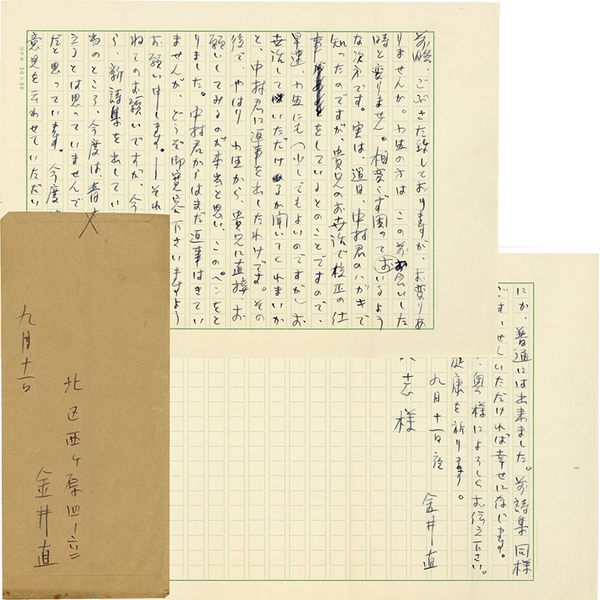 前略、ごぶさた致しておりますが、お変りあ
りませんか。小生の方は、この前お会いした
時と変りません。相変らず困っておいるよう
な次第です。実は、過日、中村君のハガキで
知ったのですが、貴兄のお世話で校正の仕
事をしているとのことですので、
早速、小生にも少しでもよいのですが、お
世話していただけるか聞いてくれまいか
と、中村君に返事を出したわけです。その
後で、やはり小生から、貴兄に直接お
願いしてみるのが本当と思い、このペンをと
りました。中村君からはまだ返事はきてい
ませんが、どうぞ御寛容下さいますよう
お願い申します。それ
ねてのお願いですが、今
ら、新詩集を出してい
当のところ、今度は、
えることは思っていませんで
だと思っています。今度
意見を云わせていただい
にか、普通には出来ました。前詩集同様
いただければ幸せに
、奥様によろしくお伝え下さい。
健康を祈ります。
九月十一日夜
金井直
志様
九月十一日
北区西ヶ原四ノ六二
金井直